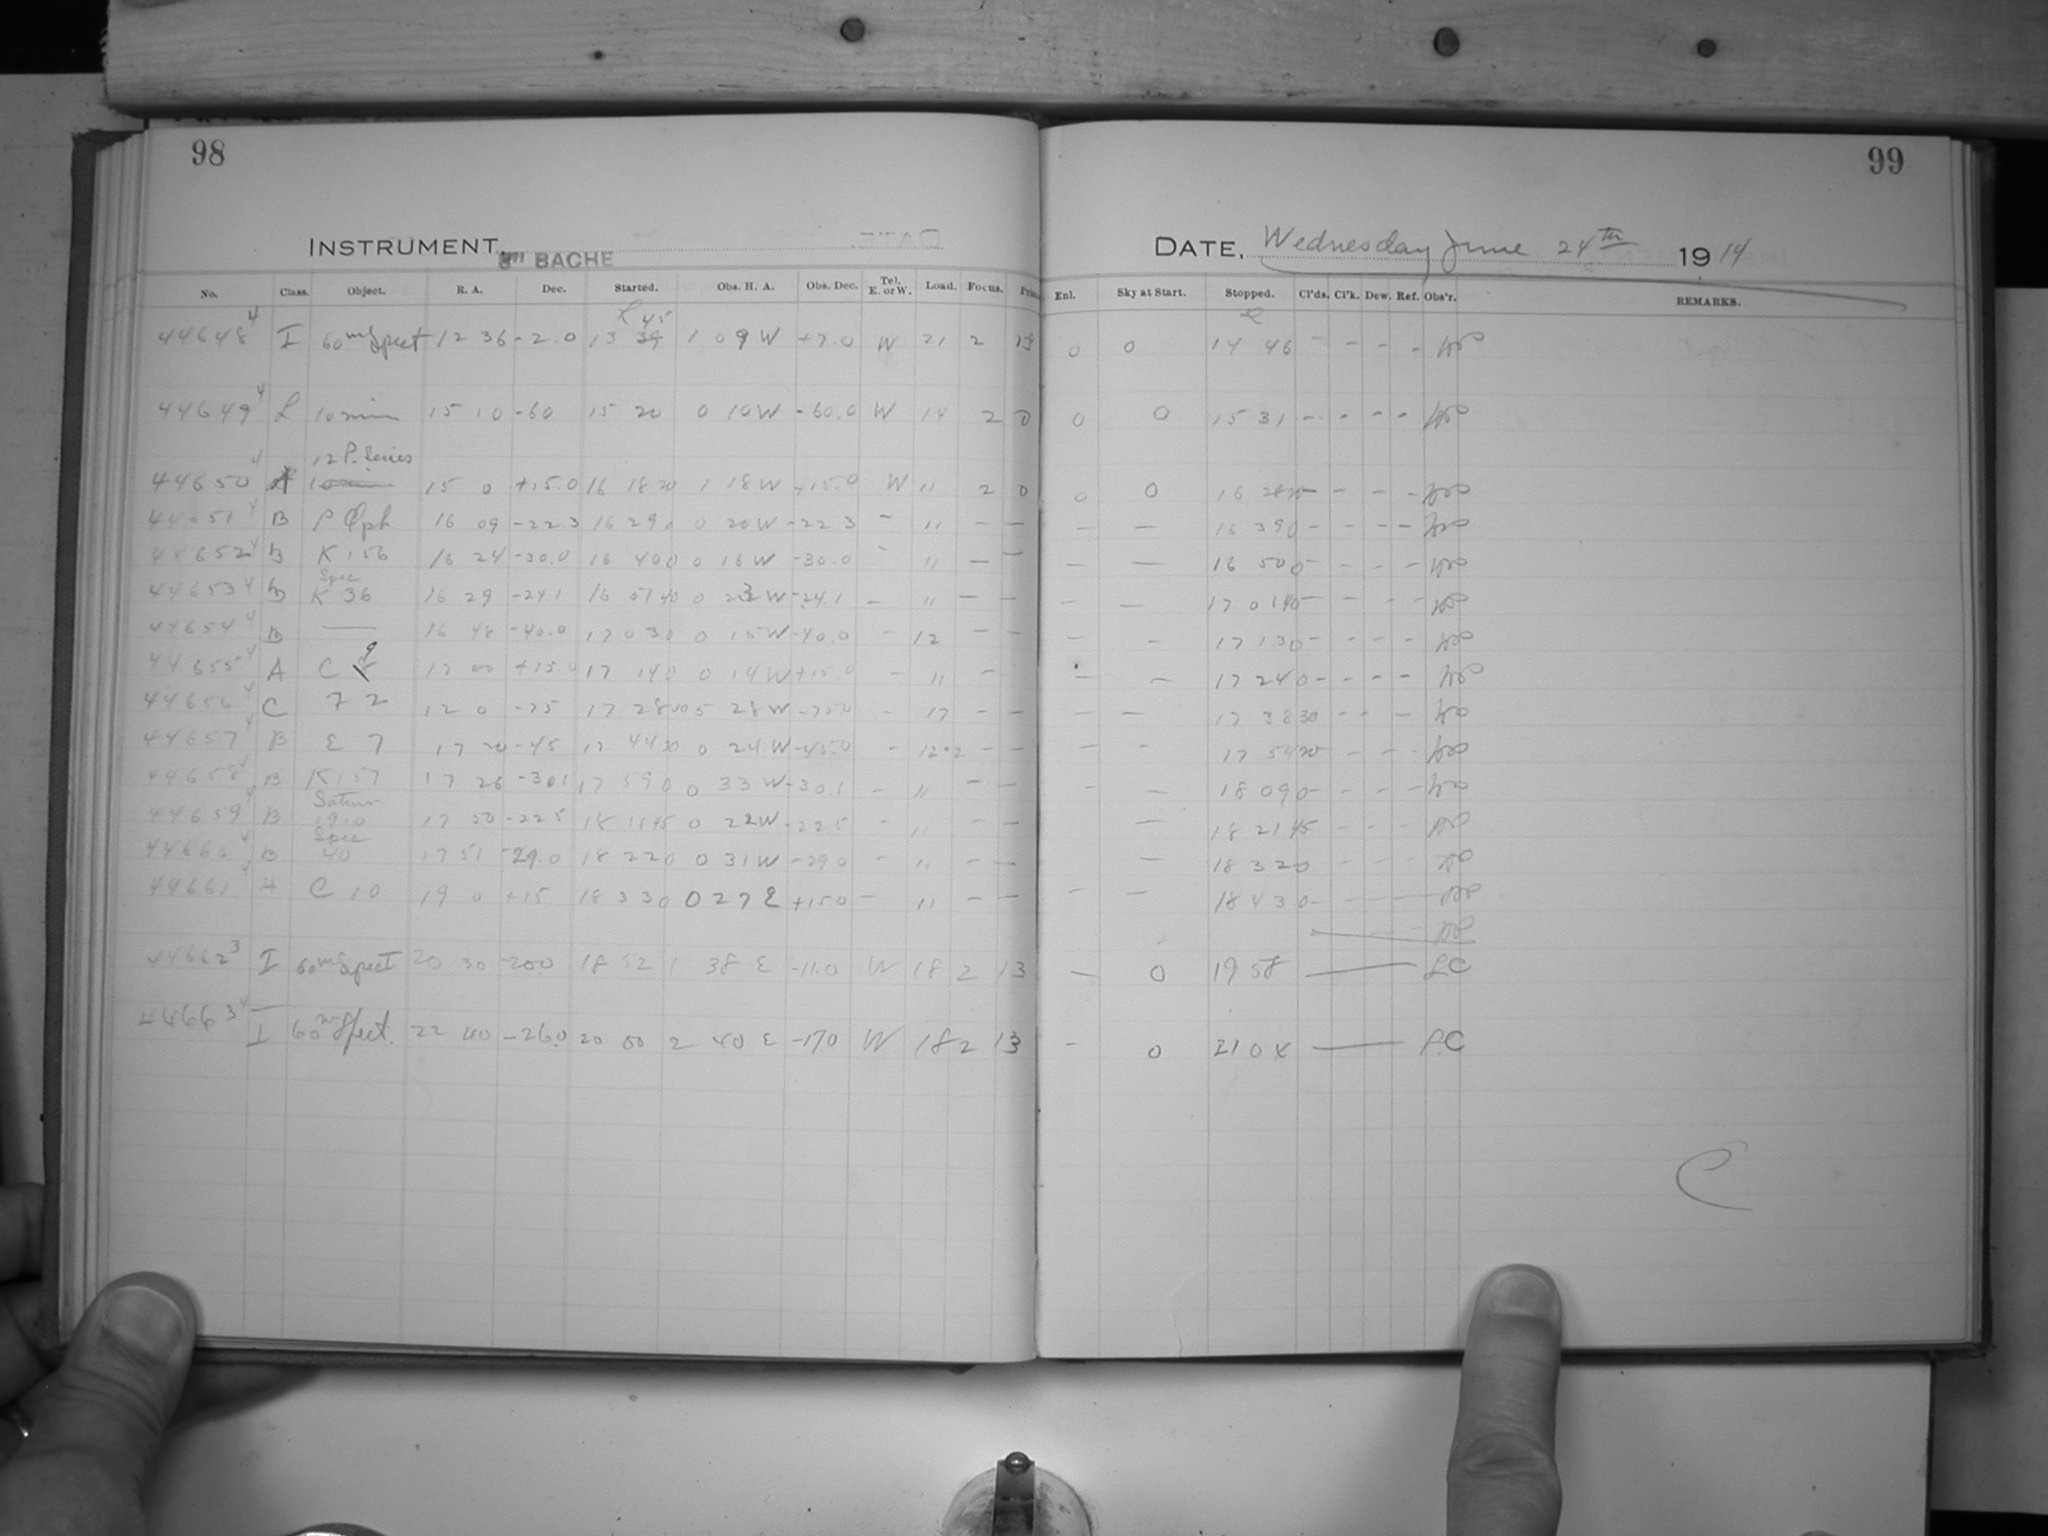 98
99
INSTRUMENT,
8" BACHE
DATE, Wednesday June 24th 1914
No. Class. Object. R. A. Dec. Started. Obs. H. A. Obs. Dec. Tel. E. or W. Load. Focus. Enl. Sky at Start. Stopped. Cl'ds. Cl'k. Dew. Ref. Obs'r. REMARKS.
45
44648 4 I 60m Spect 12 36 -2.0 13 39 1 09 W +7.0 W 21 2 13 0 0 14 46 - - - -
44649 4 L 10 min 15 10 -60 15 20 0 10 W -60.0 W 14 2 0 0 0 15 31 - - - -
12 P. Series
44650 4 A 15 0 +15.0 16 18 20 1 18 W +15.0 W " 2 0 0 0 16 - - -
44651 4 B P Oph 16 09 -22.3 16 29 0 0 20 W -22 3 - " - - - - 16 39 0 - - - -
44652 4 B K 156 16 24 -30.0 16 40 0 0 16 W -30.0 - " - - - - 16 50 0 - - - -
Spec
44653 4 B K 36 16 29 -24.1 16 51 40 0 22 W -24.1 - " - - - - 17 01 40 - - - -
44654 4 B — 16 48 -40.0 17 03 0 0 15 W -40.0 - 12 - - - - 17 13 0 - - - -
44655 4 A C 9 17 00 +15.0 17 14 0 0 14 W +15 0 - " - - - 17 24 0 - - - -
44656 4 C 72 12 0 -75 17 28 30 5 28 W -75.0 - 17 - - - - 17 38 30 - - -
44657 4 B E 7 17 20 -45 17 44 20 0 24 W -45.0 - 12.2 - - - - 17 54 20 - - -
44658 4 B K 157 17 26 -30.1 17 59 0 0 33 W -30.1 - " - - - - 18 09 0 - - - -
Saturn
44659 4 B 1910 17 50 -22 5 18 11 45 0 22 W -22 5 - " - - - 18 21 45 - - -
Spec
44660 4 B 40 17 51 -29.0 18 22 0 0 31 W -29 0 - " - - - 18 32 0 - - -
44661 4 A C 10 19 0 +15 18 33 0 0 27 E +15 0 - " - - - - 18 43 0 - - -
44662 3 I 60m Spect 20 30 -20.0 18 52 1 38 E -11.0 W 18 2 13 - 0 19 58 — LC
44663 4 I 60m Spect. 22 40 -26.0 20 00 2 40 E -17 0 W 18 2 13 - 0 21 0 — LC
C